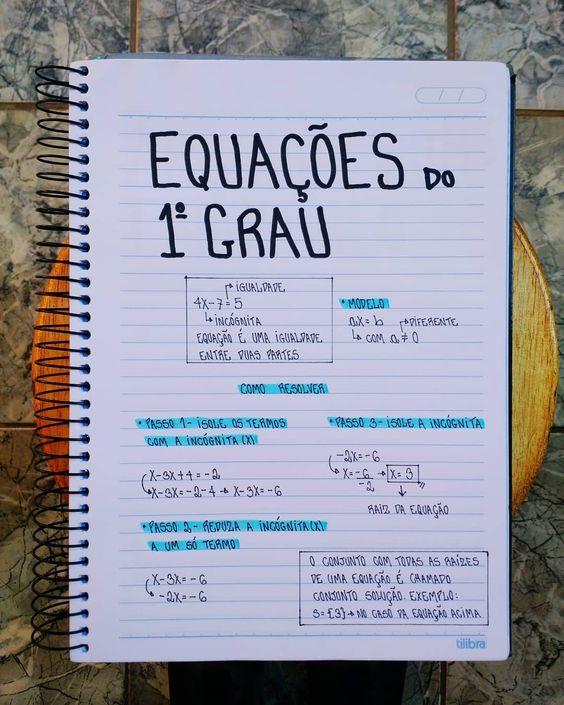 / /
EQUAÇÕES DO
1º GRAU
IGUALDADE
4X-7=5
INCÓGNITA
EQUAÇÃO É UMA IGUALDADE
ENTRE DUAS PARTES
• MODELO
ax = b
DIFERENTE
COM a ≠ 0
COMO RESOLVER
• PASSO 1- ISOLE OS TERMOS
COM A INCÓGNITA (X)
X-3X+4=-2
X-3X=-2-4 → X-3X=-6
• PASSO 2- REDUZA A INCÓGNITA (X)
A UM SÓ TERMO
X-3X=-6
-2X=-6
• PASSO 3- ISOLE A INCÓGNITA
-2X=-6
X=-6/-2 → X=3
RAIZ DA EQUAÇÃO
O CONJUNTO COM TODAS AS RAÍZES
DE UMA EQUAÇÃO É CHAMADO
CONJUNTO SOLUÇÃO. EXEMPLO:
S={3} → NO CASO DA EQUAÇÃO ACIMA
tilibra